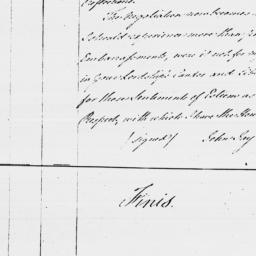 The Negotiation now becomes
I should experience more than
Embarrassments, were it not for my
in your Lordship's Candor and
for those Sentiments of Esteem and
Respect, with which I have the Honor
(signed) John Jay
Finis.